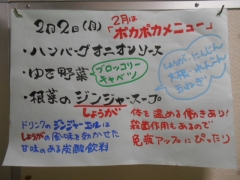 2月2日(月)
2月は
「ポカポカメニュー」
・ハンバーグオニオンソース
・ゆき野菜
ブロッコリー
キャベツ
・根菜のジンジャースープ
しょうが
しょうが・にんじん
大根・れんこん
たまねぎ
ドリンクのジンジャーエールは
しょうがの風味を効かせた
甘味のある炭酸飲料
体を温める働きあり!
殺菌作用もあるので
免疫アップにぴったり